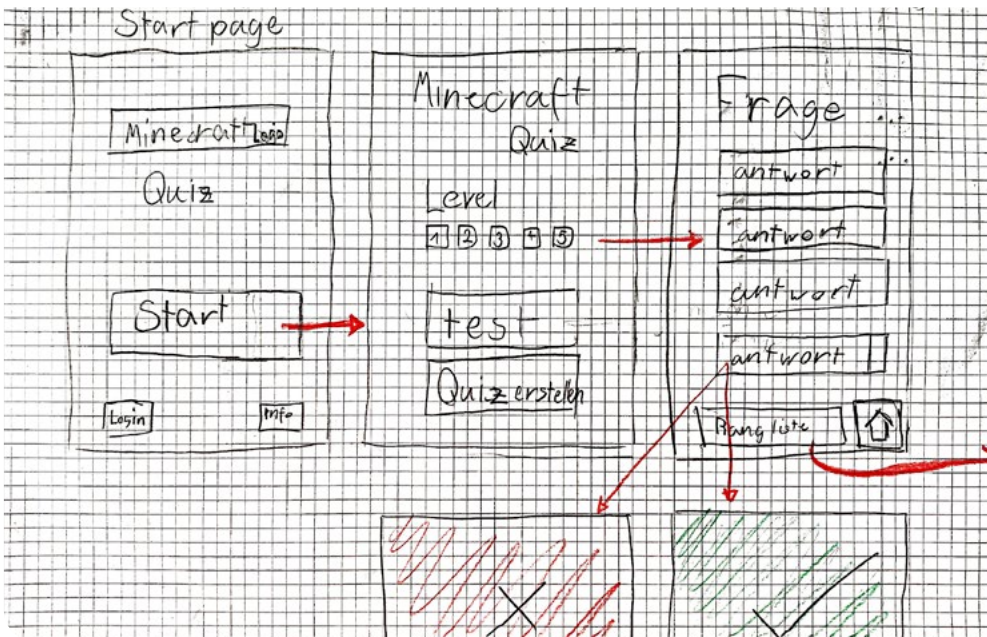 Start page
Minecraft Logo
Quiz
Start
Login
Info
Minecraft
Quiz
Level
1 2 3 4 5
test
Quiz erstellen
Frage ...
antwort
antwort
antwort
antwort
Rangliste